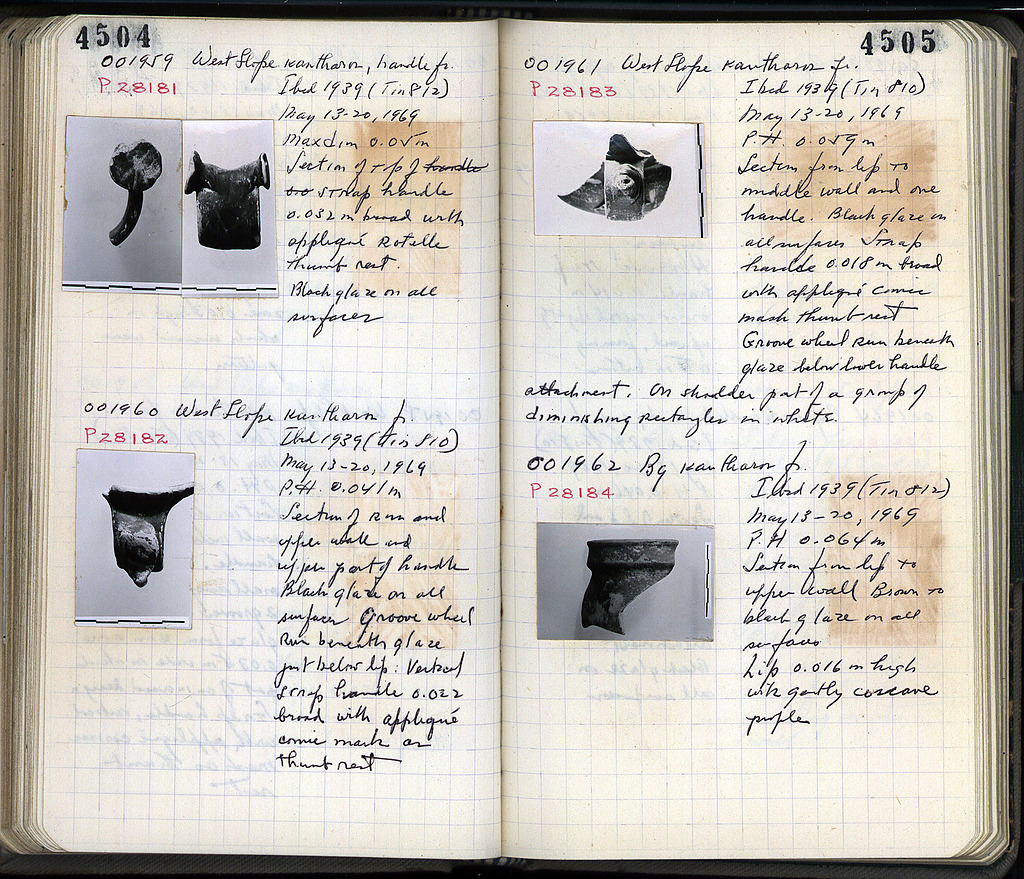 4504
001959 West Slope kantharos, handle fr.
P 28181
Ibid 1939 (Tin 812)
May 13-20, 1969
Maxdim 0.05 m
Section of top of handle
strap handle
0.032 m broad with
appliqué Rotelle
thumb rest.
Black glaze on all
surfaces
001960 West Slope kantharos fr.
P 28182
Ibid 1939 (Tin 810)
May 13-20, 1969
P.H. 0.041 m
Section of rim and
upper wall and
upper part of handle
Black glaze on all
surfaces Groove wheel
run beneath glaze
just below lip: Vertical
strap handle 0.022
broad with appliqué
comic mask as
thumb rest
4505
001961 West Slope kantharos fr.
P 28183
Ibid 1939 (Tin 810)
May 13-20, 1969
P.H. 0.059 m
Section from lip to
middle wall and one
handle. Black glaze on
all surfaces Strap
handle 0.018 m broad
with appliqué comic
mask thumb rest
Groove wheel run beneath
glaze below lower handle
attachment. On shoulder part of a group of
diminishing rectangles in white.
001962 Bg kantharos fr.
P 28184
Ibid 1939 (Tin 812)
May 13-20, 1969
P.H 0.064 m
Section from lip to
upper wall Brown to
black glaze on all
surfaces
Lip 0.016 m high
with gently concave
profile